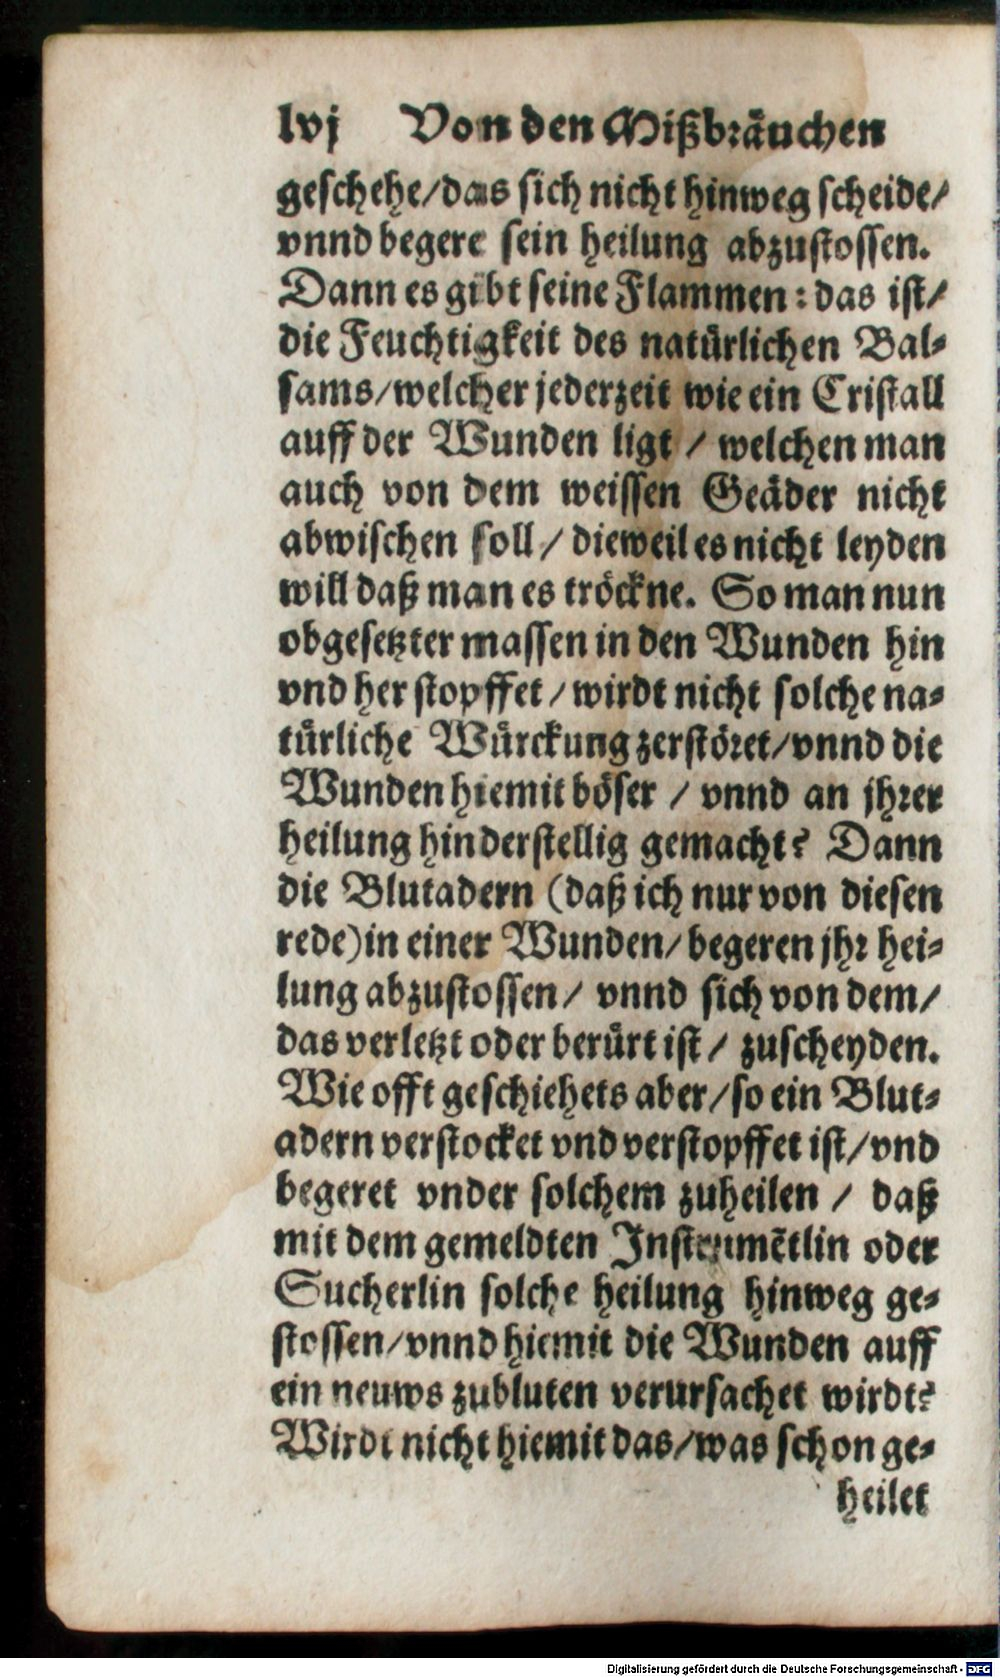 lvj Von den Mißbräuchen
geschehe/das sich nicht hinweg scheide/
vnnd begere sein heilung abzustossen.
Dann es gibt seine Flammen: das ist/
die Feuchtigkeit des natürlichen Bal-
sams/welcher jederzeit wie ein Cristall
auff der Wunden ligt / welchen man
auch von dem weissen Geäder nicht
abwischen soll/ dieweil es nicht leyden
will daß man es tröckne. So man nun
obgesetzter massen in den Wunden hin
vnd her stopffet/ wirdt nicht solche na-
türliche Würckung zerstöret/vnnd die
Wunden hiemit böser / vnnd an jhrer
heilung hinderstellig gemacht? Dann
die Blutadern (daß ich nur von diesen
rede)in einer Wunden/ begeren jhr hei-
lung abzustossen/ vnnd sich von dem/
das verletzt oder berürt ist/ zuscheyden.
Wie offt geschiehets aber/so ein Blut-
adern verstocket vnd verstopffet ist/vnd
begeret vnder solchem zuheilen / daß
mit dem gemeldten Instrumẽtlin oder
Sucherlin solche heilung hinweg ge-
stossen/vnnd hiemit die Wunden auff
ein neuws zubluten verursachet wirdt?
Wirdt nicht hiemit das/was schon ge-
heilet
Digitalisierung gefördert durch die Deutsche Forschungsgemeinschaft - DFG